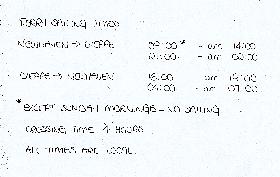 FERRY SAILING TIMES
NEWHAVEN → DIEPPE 09:00* – arr 14:00
– arr 00:00
DIEPPE → NEWHAVEN – arr 19:00
– arr 07:00
*EXCEPT SUNDAY MORNINGS – NO SAILING
CROSSING TIME 4 HOURS
ALL TIMES ARE LOCAL